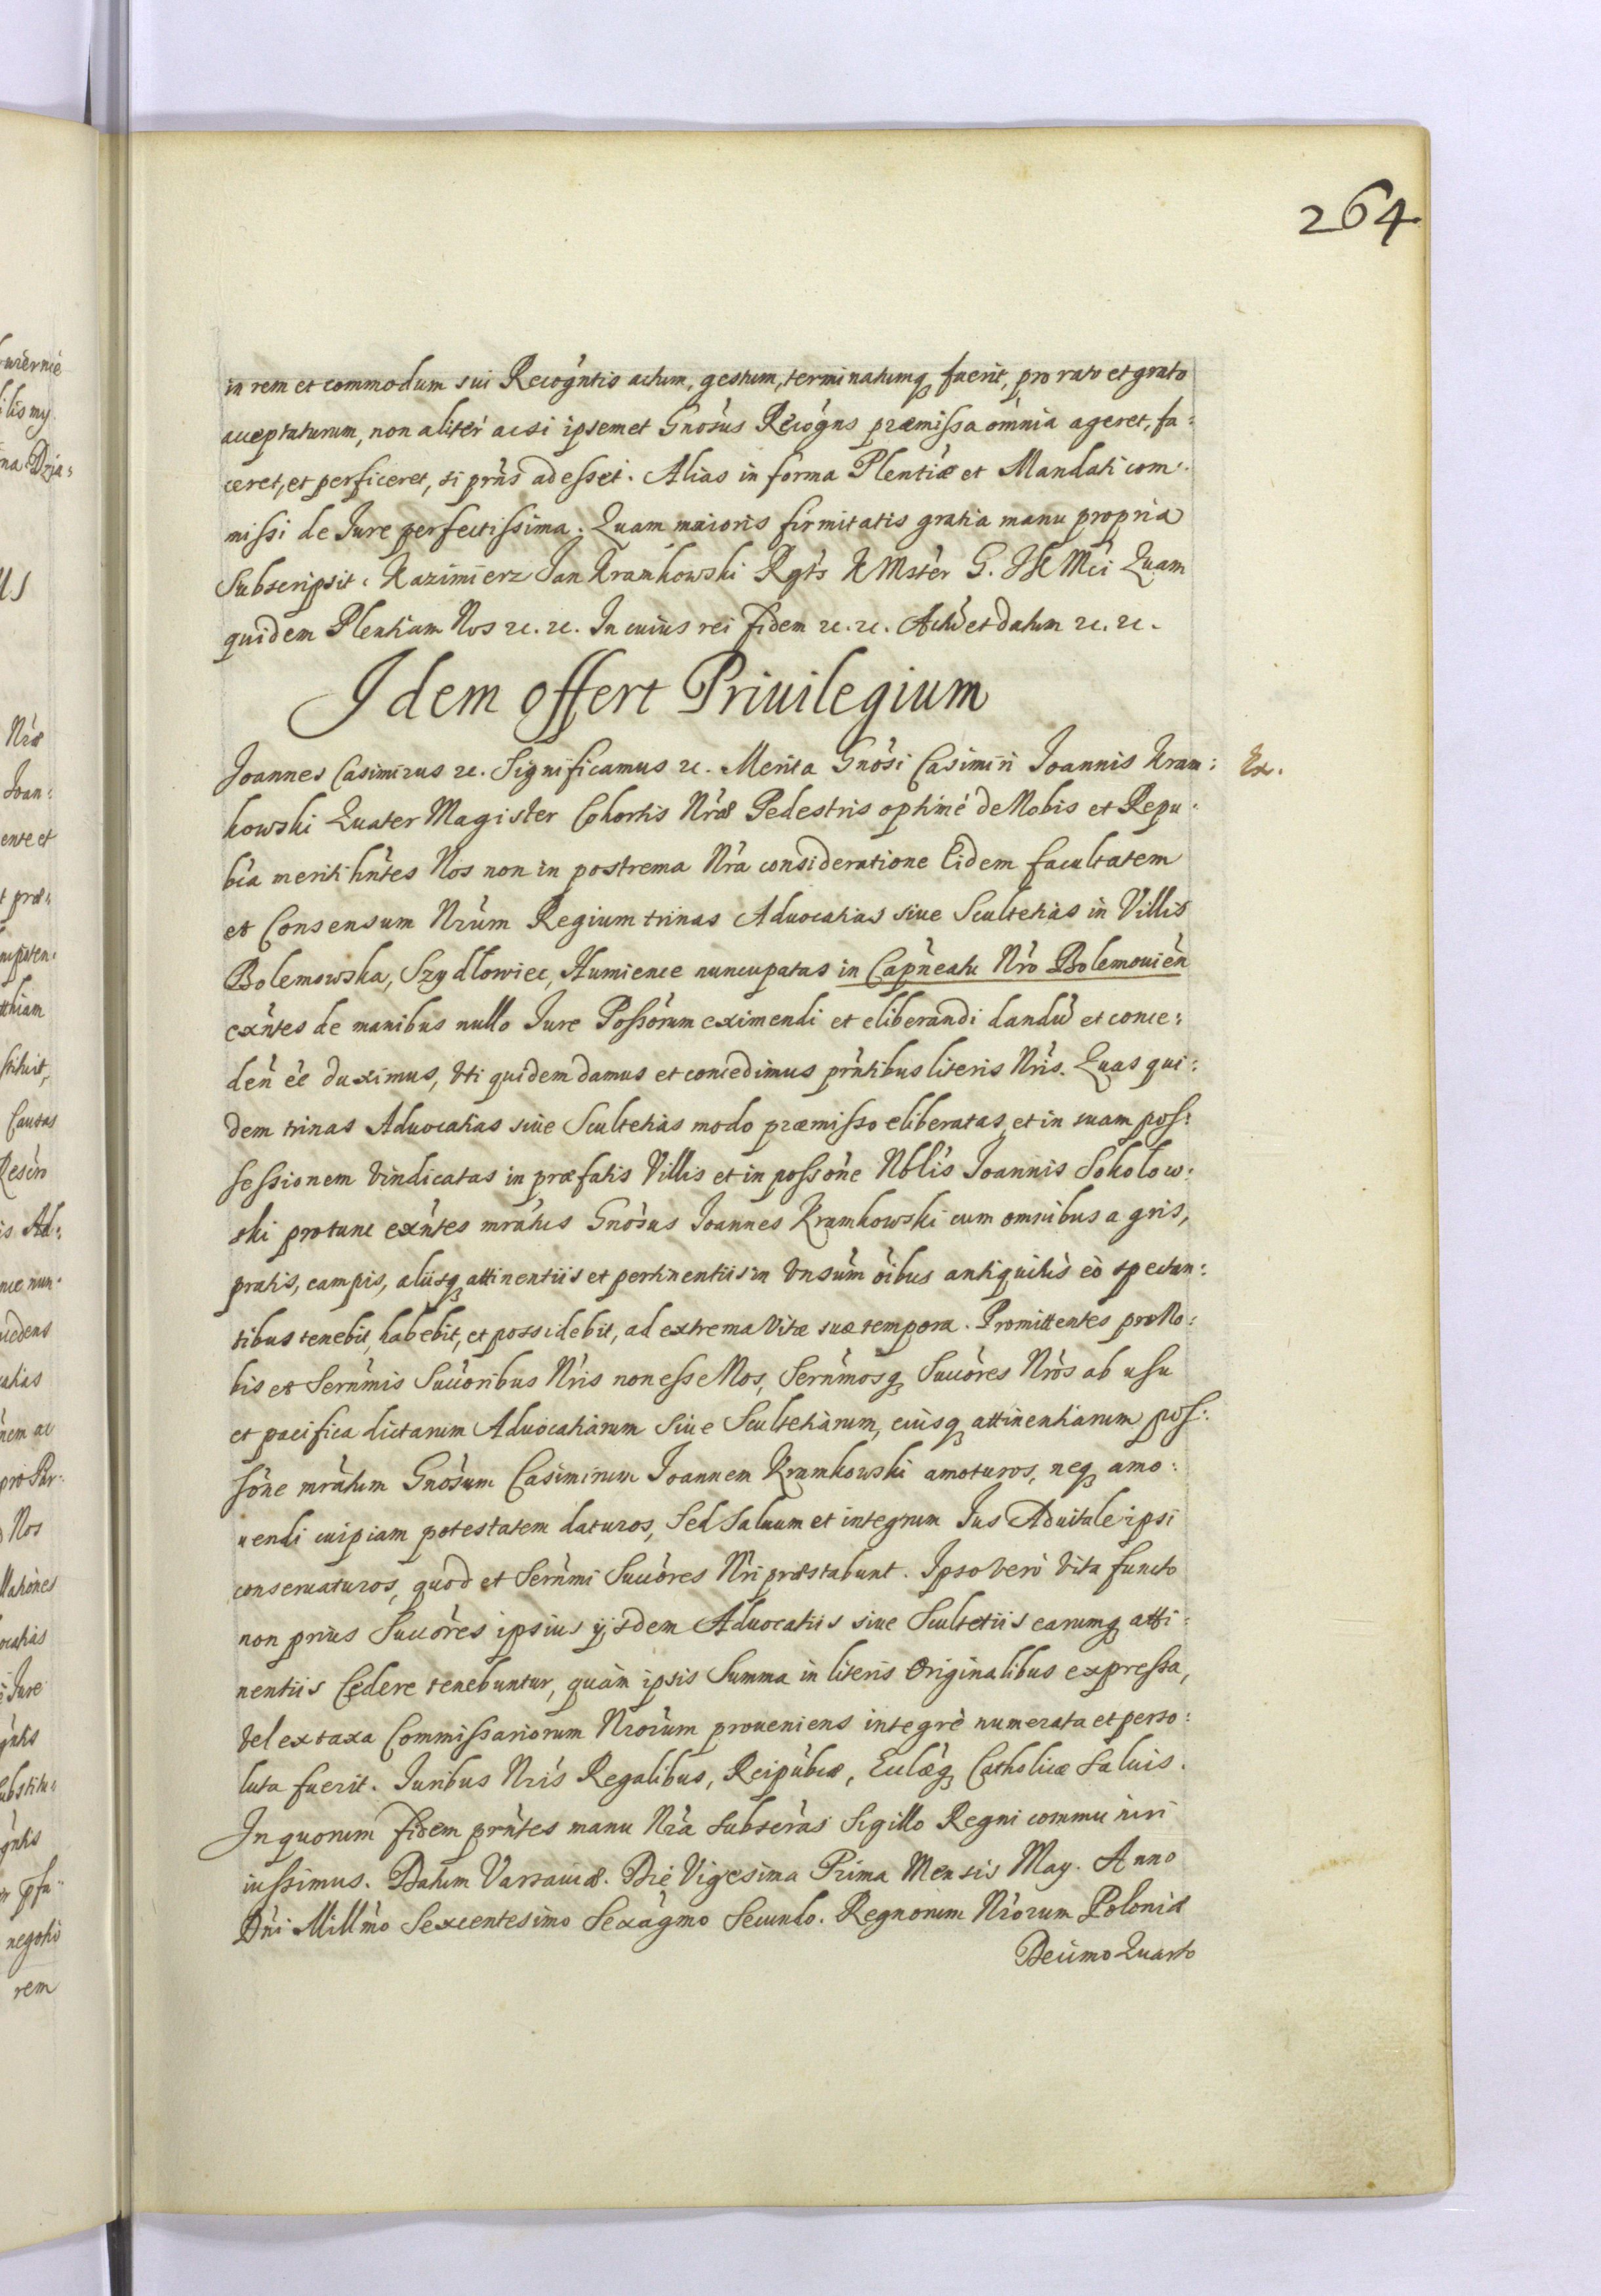 264
in rem et commodum sui Recogntis actum, gestum, terminatumq fuerit, pro rato et grato
acceptaturum, non aliter acsi ipsemet Gnosus Recogns præmissa omnia ageret, fa:
ceret, et perficeret, si prns adesset. Alias in forma Plentiæ et Mandati com:
missi de Jure perfectissima. Quam maioris firmitatis gratia manu propria
Subscripsit. Kazimierz Jan Kramkowski Rgts K Mster G. JK Mci Quam
quidem Plentiam Nos zc. zc. In cuius rei fidem zc. zc. Actu et datum zc. zc.
Idem offert Priuilegium
Joannes Casimirus zc. Significamus zc. Merita Gnosi Casimiri Joannis Kram:
Ex.
kowski Quater Magister Cohortis Nræ Pedestris optime de Nobis et Repu:
bca meriti hntes Nos non in postrema Nra consideratione Eidem facultatem
et Consensum Nrum Regium trinas Aduocatias siue Scultetias in Villis
Bolemowska, Szydłowiec, Humience nuncupatas in Capneatu Nro Bolemouien
exntes de manibus nullo Jure Possorum eximendi et eliberandi dandu et conce:
den ee duximus, Vti quidem damus et concedimus prntibus literis Nris. Quas qui:
dem trinas Aduocatias siue Scultetias modo præmisso eliberatas, et in suam pos:
sessionem vindicatas in præfatis Villis et in possone Nblis Joannis Sokołow:
ski protunc exntes mratus Gnosus Joannes Kramkowski cum omnibus agris,
pratis, campis, aliisq attinentiis et pertinentiis in Vnsum oibus antiquitus eo spectan:
tibus tenebit, habebit, et possidebit, ad extrema Vitæ suæ tempora. Promittentes pro No:
bis et Sernmis Succoribus Nris non esse Nos, Sernmosq Succores Nros ab usu
et pacifica dictarum Aduocatiarum Siue Scultetiarum, eiusq attinentiarum pos:
sone mratum Gnosum Casimirum Joannem Kramkowski amoturos, neq amo:
uendi cuipiam potestatem daturos, Sed Saluum et integrum Jus Aduitale ipsi
conseruaturos, quod et Sernmi Succores Nri præstabunt. Ipso vero Vita functo
non prius Succores ipsius ijsdem Aduocatiis siue Scultetiis earumq atti:
nentiis Cedere tenebuntur, quam ipsis Summa in literis Originalibus expressa,
Vel ex taxa Commissariorum Nrorum proueniens integre numerata et perso:
luta fuerit. Juribus Nris Regalibus, Reipubcæ, Ecclæq Catholicæ Saluis.
In quorum fidem prntes manu Nra Subscras Sigillo Regni communiri
iussimus. Datum Varsauiæ. Die Vigesima Prima Mensis May. Anno
Dni Millmo Sexcentesimo Sexagmo Secundo. Regnorum Nrorum Poloniæ
Decimo Quarto